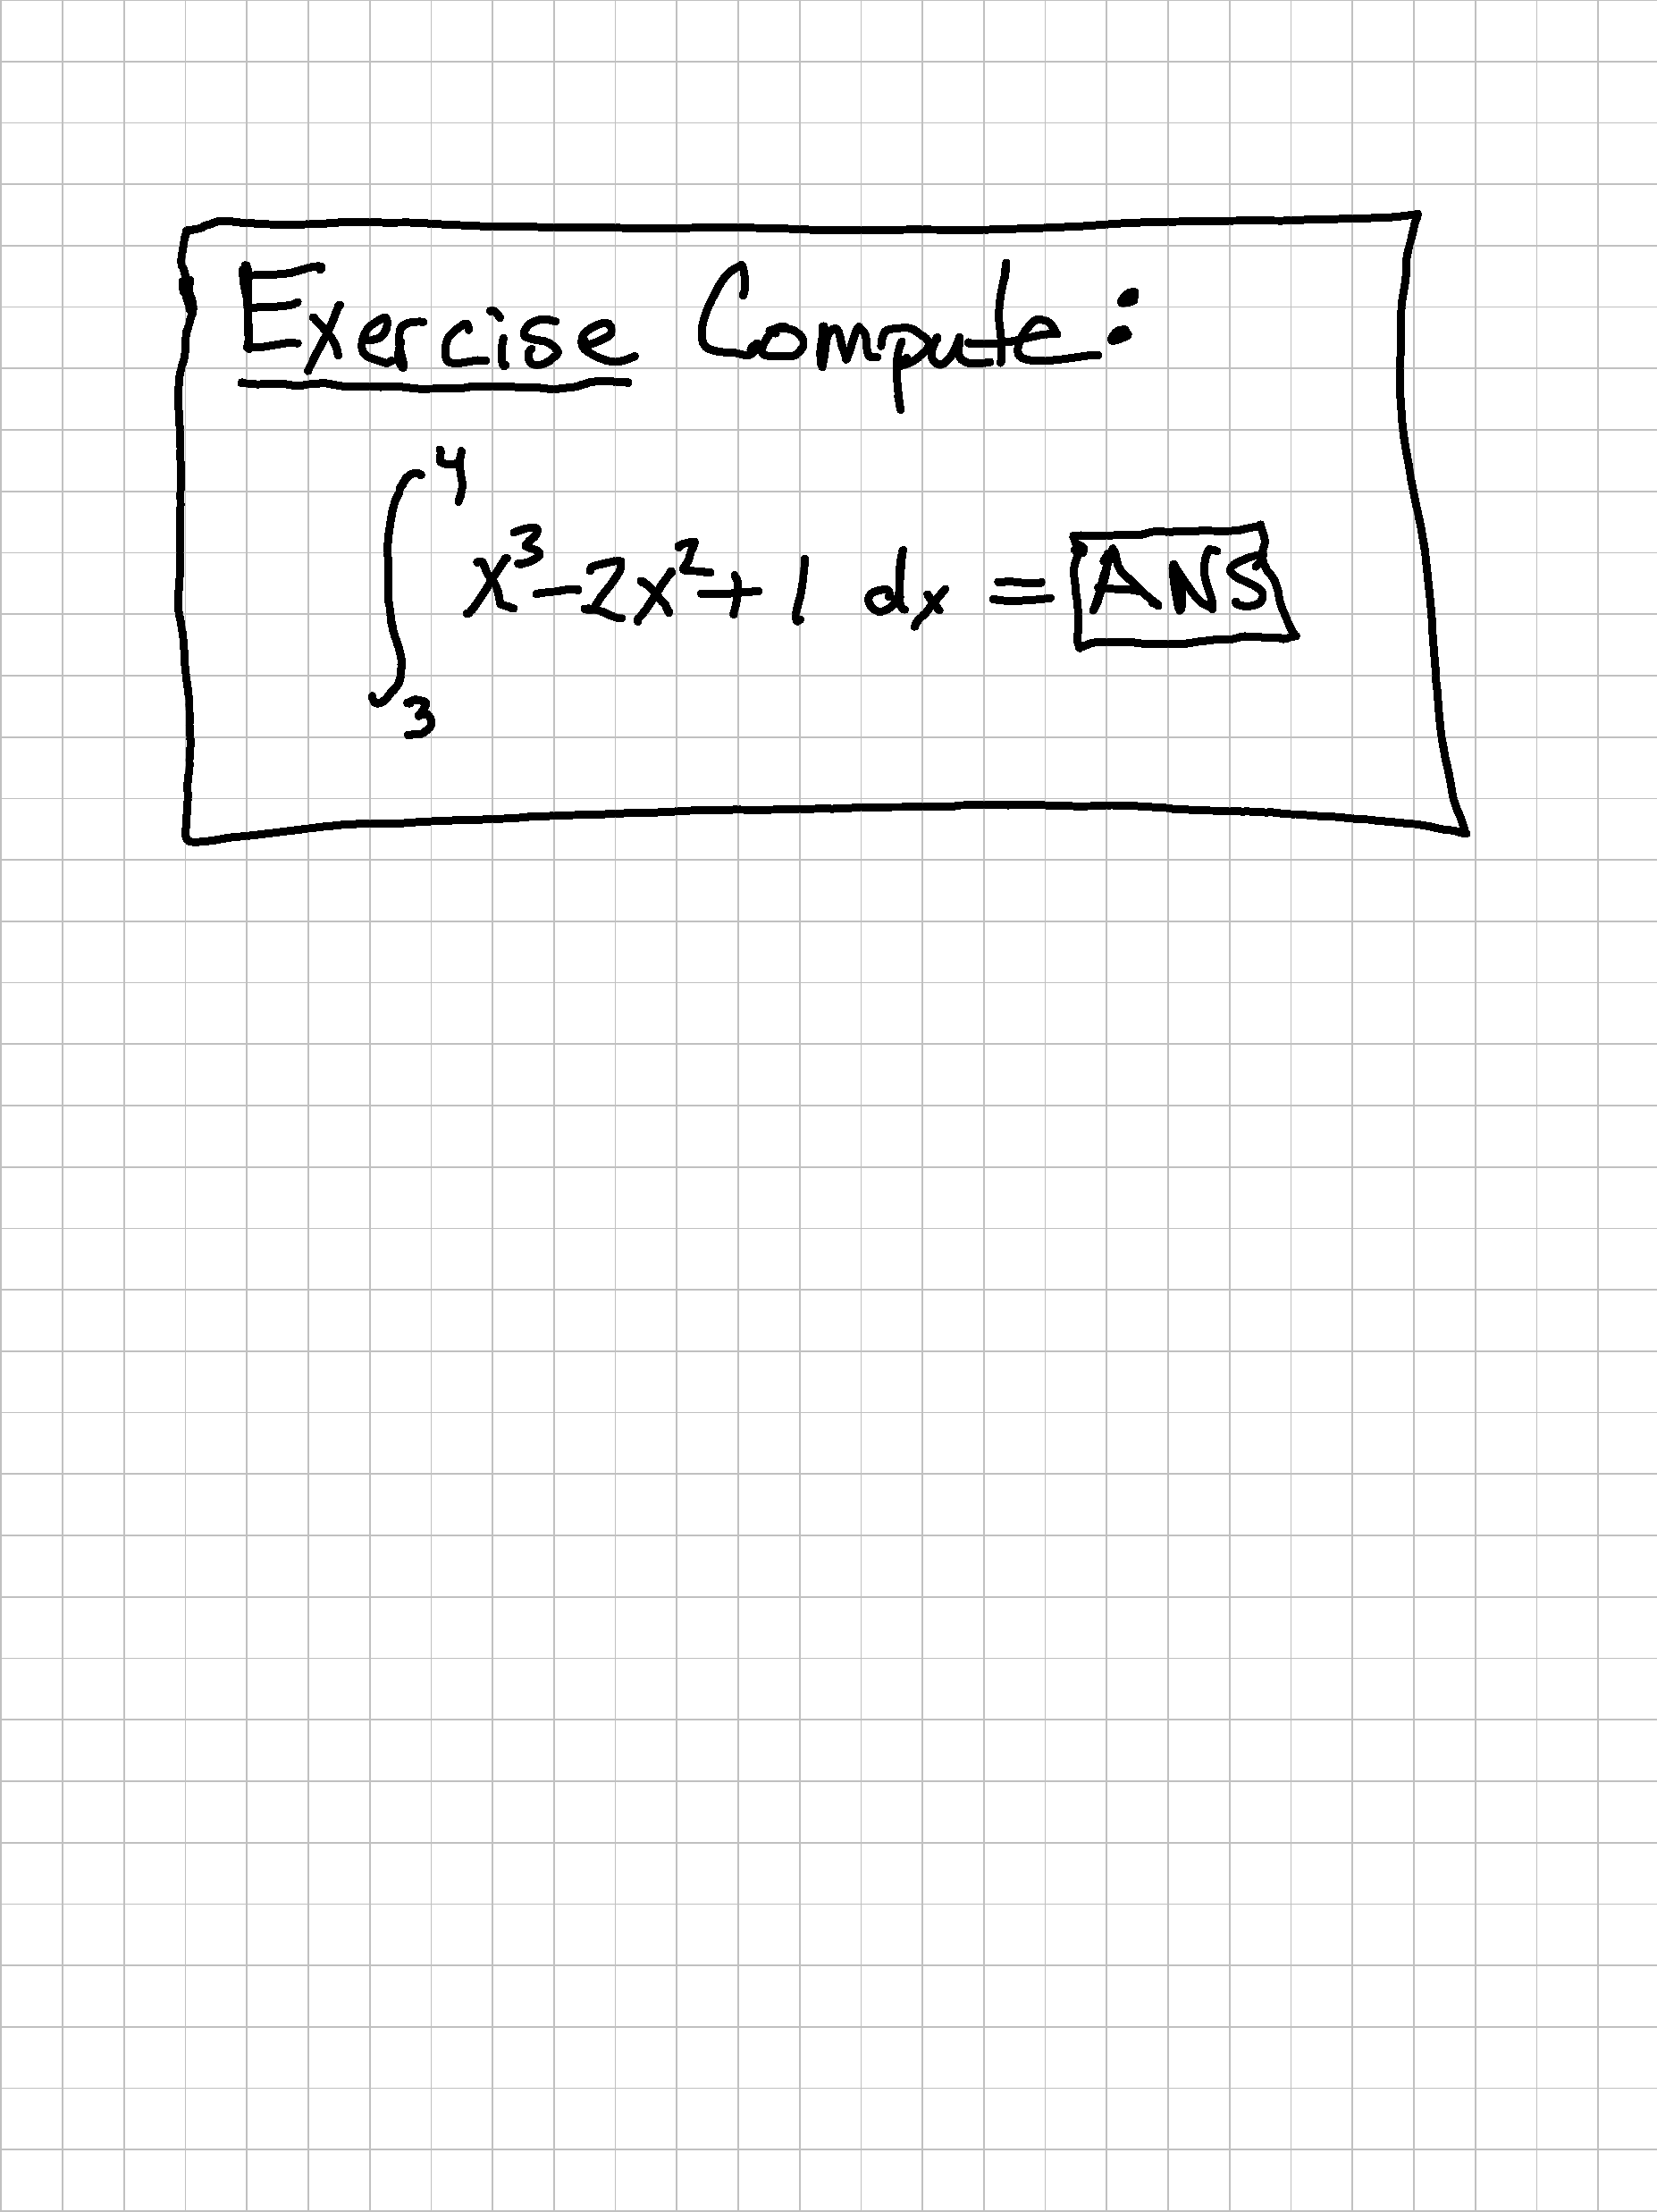 Exercise Compute:
∫₃⁴ x³-2x²+1 dx = ANS